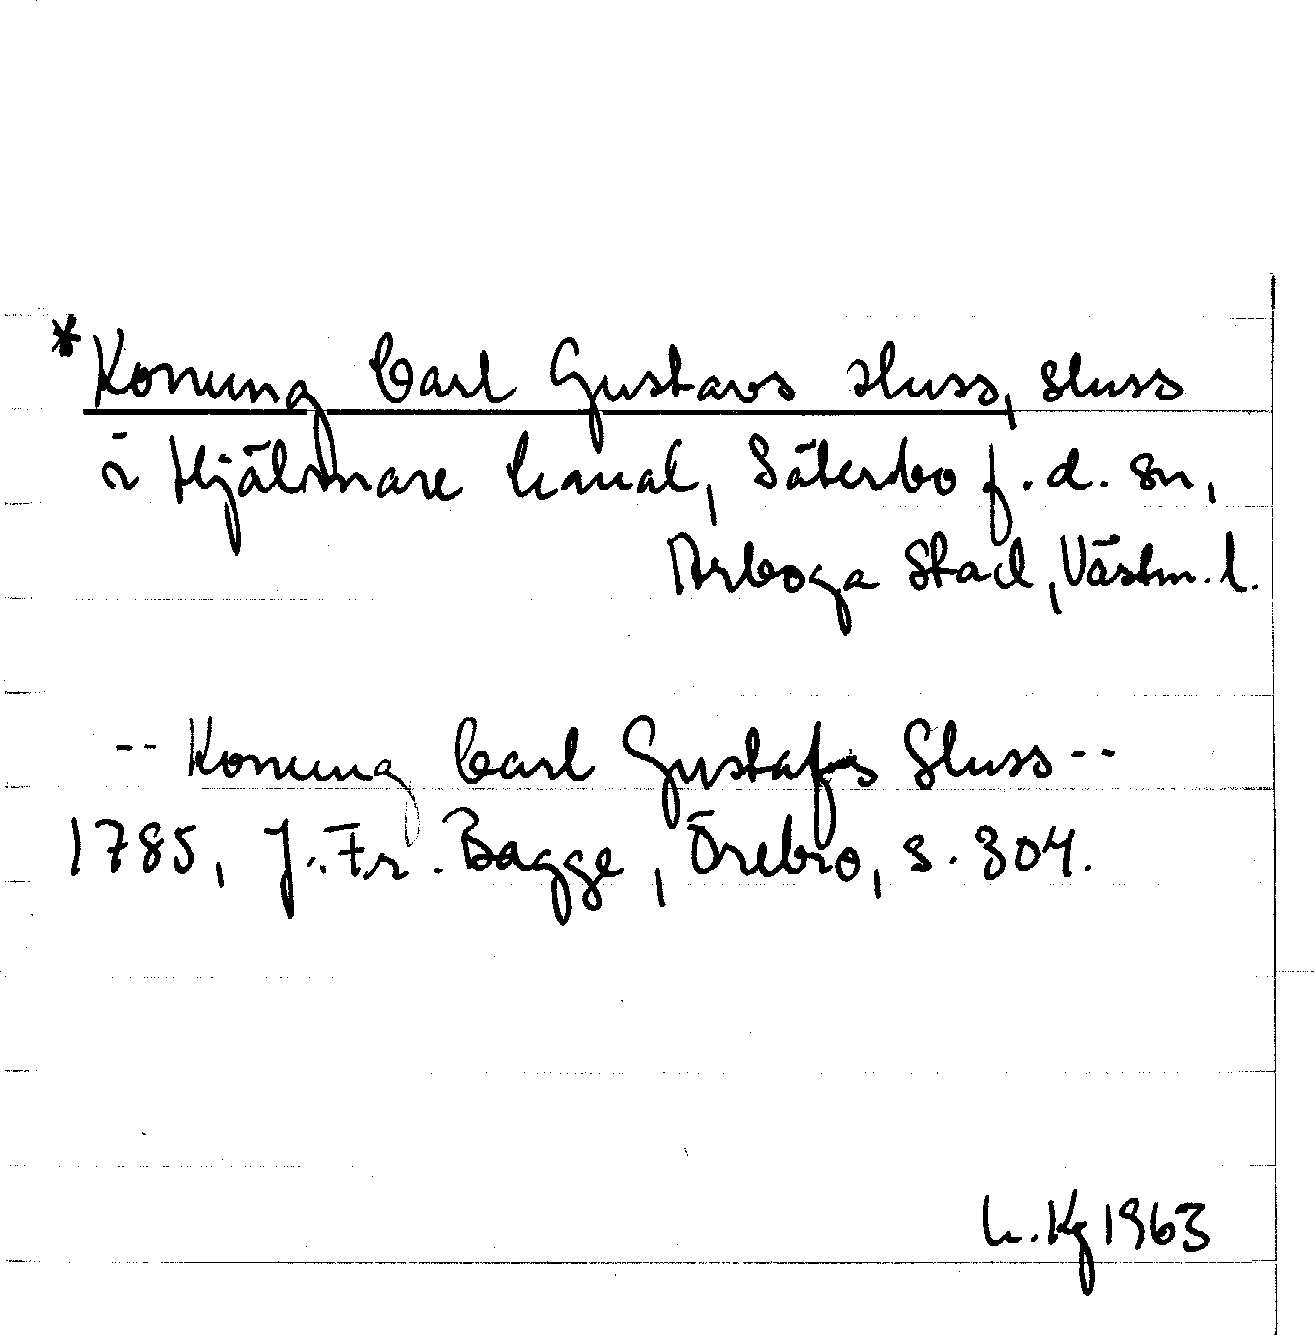 *Konung Carl Gustavs sluss, sluss
i Hjälmare kanal, Säterbo f.d. sn,
Arboga stad, Västm. l.
-- Konung Carl Gustafs Sluss --
1785, J. Fr. Bagge, Örebro, s. 304.
L. Kg 1963